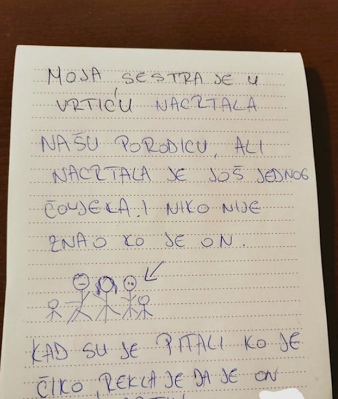 MOJA SESTRA JE U
VRTIĆU NACRTALA
NAŠU PORODICU, ALI
NACRTALA JE JOŠ JEDNOG
ČOVJEKA. I NIKO NIJE
ZNAO KO JE ON.
KAD SU JE PITALI KO JE
ČIKO, REKLA JE DA JE ON